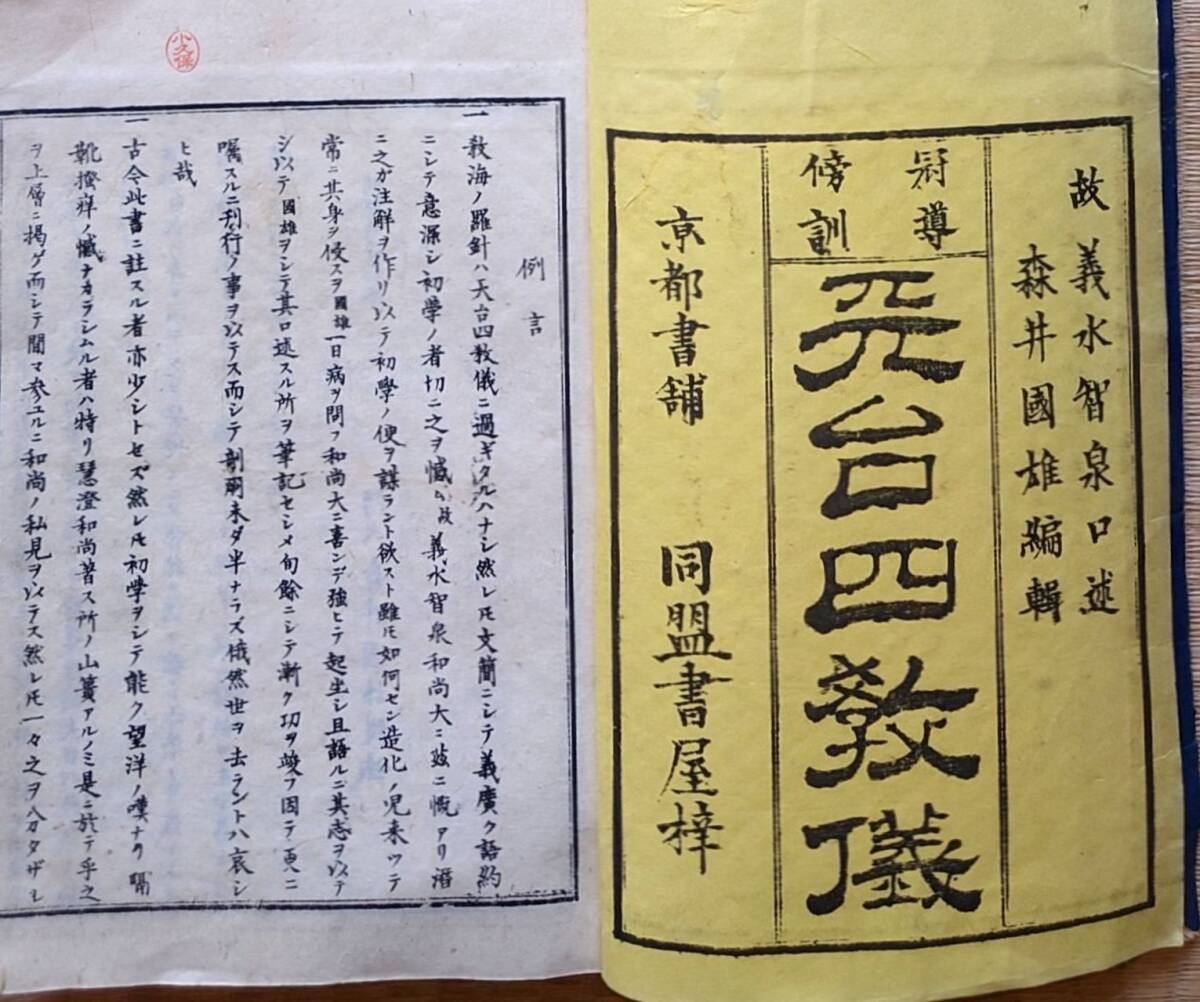 故 義水智泉口述
森井國雄編輯
冠導
傍訓
天台四教儀
京都書舗 同盟書屋梓
小久保
例言
一教海ノ羅針ハ天台四教儀ニ過ギタルハナシ然レ𪜈文簡ニシテ義廣ク語約
ニシテ意深シ初学ノ者切ニ之ヲ憾ム故義水智泉和尚大ニ玆ニ慨アリ潛
ニ之カ注解ヲ作リ以テ初學ノ便ヲ謀ラント欲スト雖𪜈如何セン造化ノ児来ツテ
常ニ其身ヲ侵スヲ國雄一日病ヲ問フ和尚大ニ喜ンデ強ヒテ起坐シ且語ルニ其志ヲ以テ
シ以テ國雄ヲシテ其口述スル所ヲ筆記セシメ旬餘ニシテ漸ク功ヲ竣フ因テ更ニ
嘱スルニ刊行ノ事ヲ以テス而シテ剞劂未ダ半ナラズ俄然世ヲ去ラントハ哀シ
ヒ哉
一古今此書ニ註スル者亦少シトセズ然レ𪜈初學ヲシテ能ク望洋ノ嘆ナク隔
靴搔痒ノ憾ナカラシムル者ハ特リ慧澄和尚著ス所ノ山籟アルノミ是ニ於テ乎之
ヲ上層ニ掲ゲ而シテ間マ参ユルニ和尚ノ私見ヲ以テス然レ𪜈一々之ヲ分タザレ